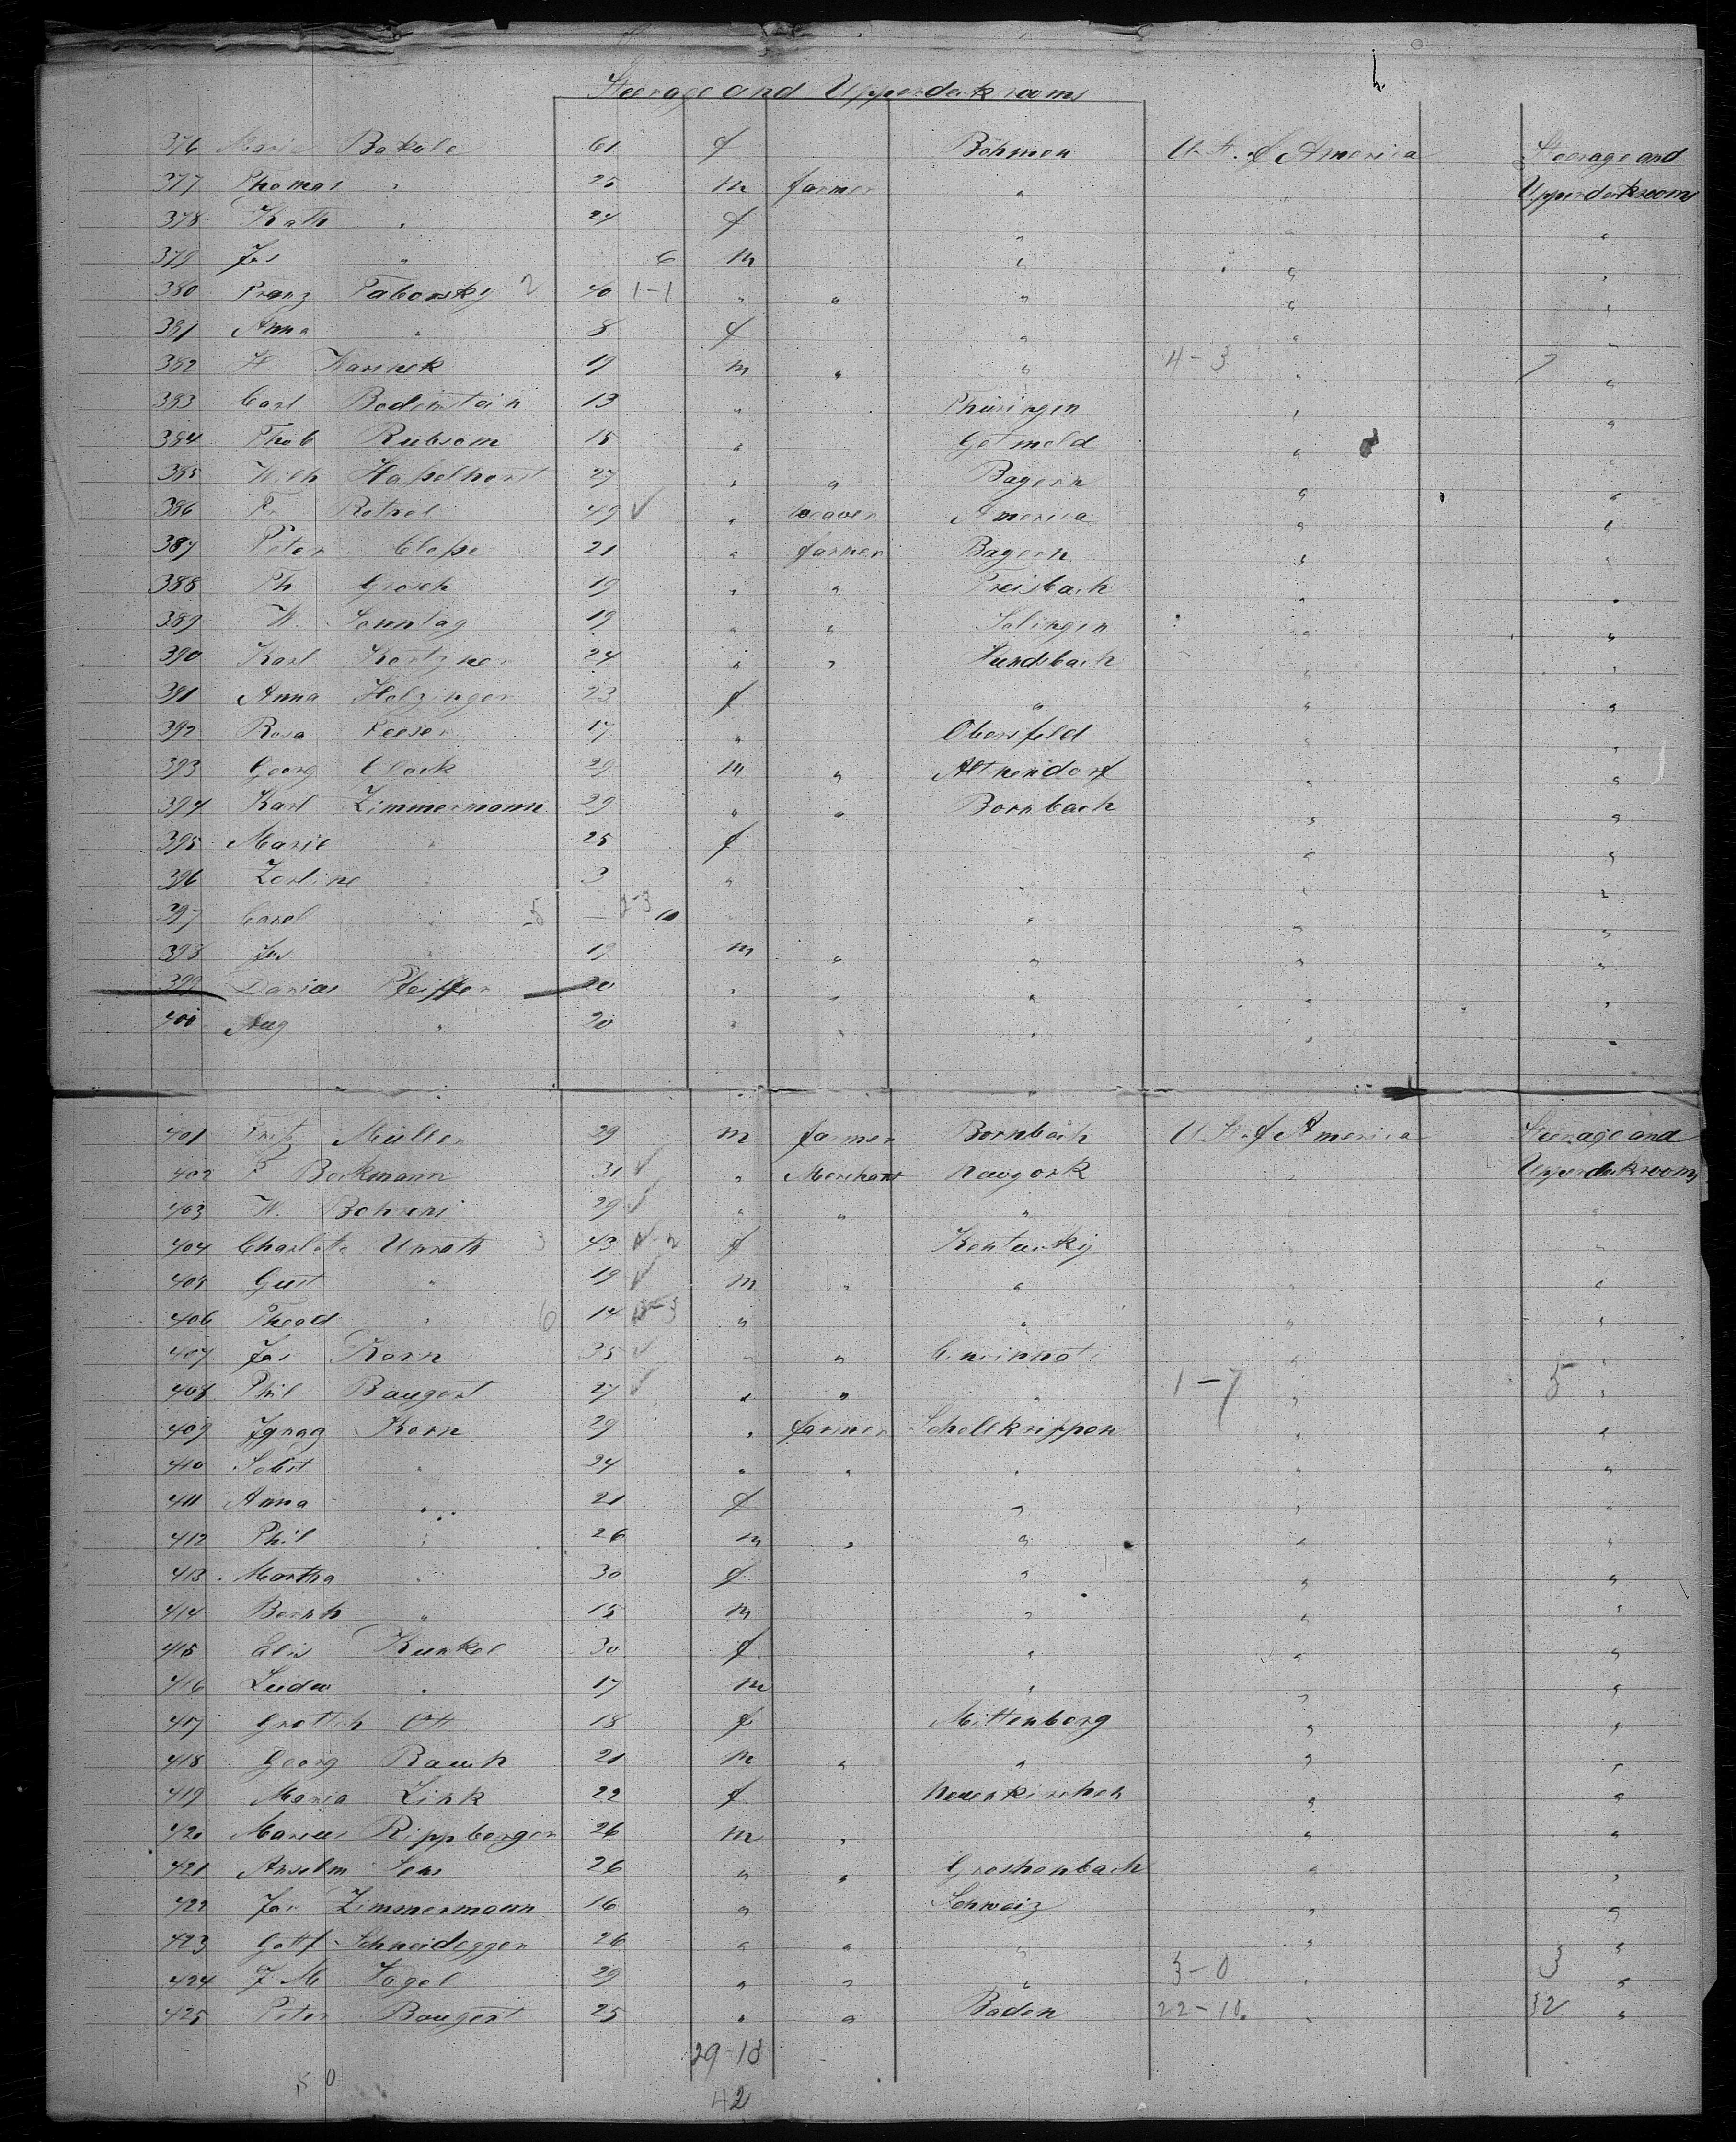 Steerage and Upperdeck rooms
376 Marie Bakole 61 f Böhmen U. St. of America Steerage and
377 Thomas " 25 m farmer " " Upperdeckrooms
378 Kath " 24 f " " "
379 Jos " 6 m " " "
380 Franz Taborsky 2 40 1-1 " " " " "
381 Anna " 8 f " " "
382 H 19 m " " 4-3 " 7 "
383 Carl Bodenstein 13 " Thüringen " "
384 Rubsam 15 " Getmold " "
385 Wilh Haßelhorst 27 " " Bayern " "
386 Fr 49 ✓ " weaver America " "
387 Peter Cloße 21 " farmer Bayern " "
388 Ph Grosch 19 " " Freisbach " "
389 W. Sonntag 19 " " Solingen " "
390 Karl 24 " " Hundsbach " "
391 Anna Holzinger 23 f " " "
392 Rosa Feeser 17 " Obersfeld " "
393 Georg Clock 29 m " " "
394 Karl Zimmermann 29 " " Bornbach " "
395 Marie " 25 f " "
396 " 3 " " " "
397 Carol " 5 2-3 10 " " "
398 Jos " 19 m " " " "
399 Pfeiffer 20 " " " " "
400 Aug " 20 " " " " "
401 Fritz Müller 29 m farmer Bornbach U. St. of America Steerage and
402 F Beckmann 31 ✓ " Merchant Newyork " Upperdeckrooms
403 W. Behrens 29 ✓ " " " "
404 Charlotte Unrath 3 43 2 f Kentucky " "
405 Gust " 19 ✓ m " " " "
406 Theod " 6 14 3 " " " "
407 Jos Korn 35 ✓ " " Cincinnati " "
408 Phil Baugert 27 ✓ " " " 1-7 " 5 "
409 Ignaz Korn 29 " farmer Schollkrippen " "
410 Sebst " 24 " " " " "
411 Anna " 21 f " " "
412 Phil " 26 m " " " "
413 Martha " 30 f " " "
414 Bernh " 15 m " " "
415 Elis Kunkel 30 f " " "
416 Ludw " 17 m " " "
417 Ott 18 f Mittenberg " "
418 Georg Rauch 21 m " " " "
419 Maria Zink 22 f Neuenkirchen " "
420 Marcus Rippberger 26 m " " "
421 Anselm 26 " " Groshenbach " "
422 Jos Zimmermann 16 " Schweiz " "
423 Gottf Schneidegger 26 " " " " "
424 J M Vogel 29 " " " 3-0 " 3 "
425 Peter Baugert 25 " " Baden 22-10 " 32 "
29-13
50 42